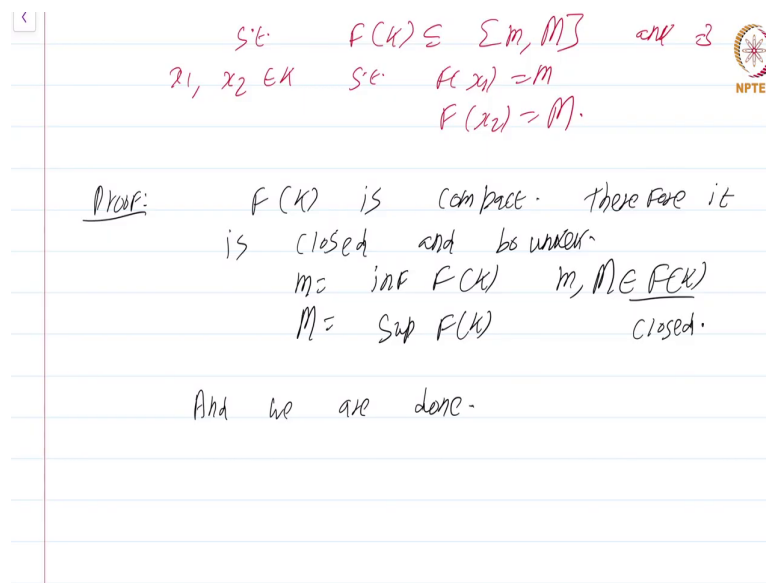 s.t. F(K) ⊆ [m, M] and ∃
x1, x2 ∈ K s.t. F(x1) = m
F(x2) = M.
NPTE
Proof: F(K) is compact. therefore it
is closed and bounded.
m = inf F(K) m, M ∈ F(K)
M = Sup F(K) closed.
And we are done.